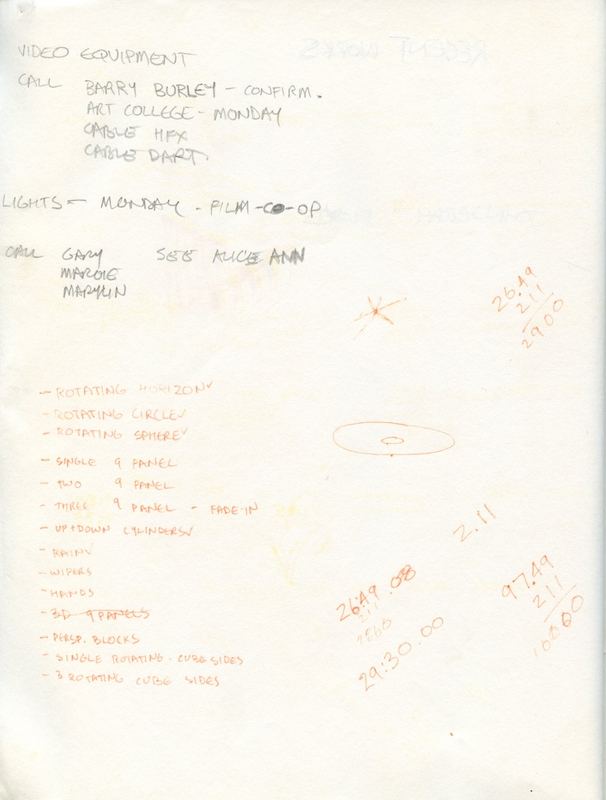 VIDEO EQUIPMENT
CALL BARRY BURLEY - CONFIRM.
ART COLLEGE - MONDAY
CABLE HFX
CABLE DART
LIGHTS - MONDAY - FILM-CO-OP
CALL GARY SEE ALICE ANN
MARGIE
MARYLIN
26.49
211
2900
- ROTATING HORIZON ✓
- ROTATING CIRCLE ✓
- ROTATING SPHERE ✓
- SINGLE 9 PANEL
- TWO 9 PANEL
- THREE 9 PANEL - FADE-IN
- UP+DOWN CYLINDERS ✓
- RAIN ✓
- WIPERS
- HANDS
- 3D 9 PANELS
- PERSP. BLOCKS
- SINGLE ROTATING. CUBE SIDES
- 3 ROTATING CUBE SIDES
2.11
26:49.08
211
29:30.00
97.49
211
10000
RECENT WORKS